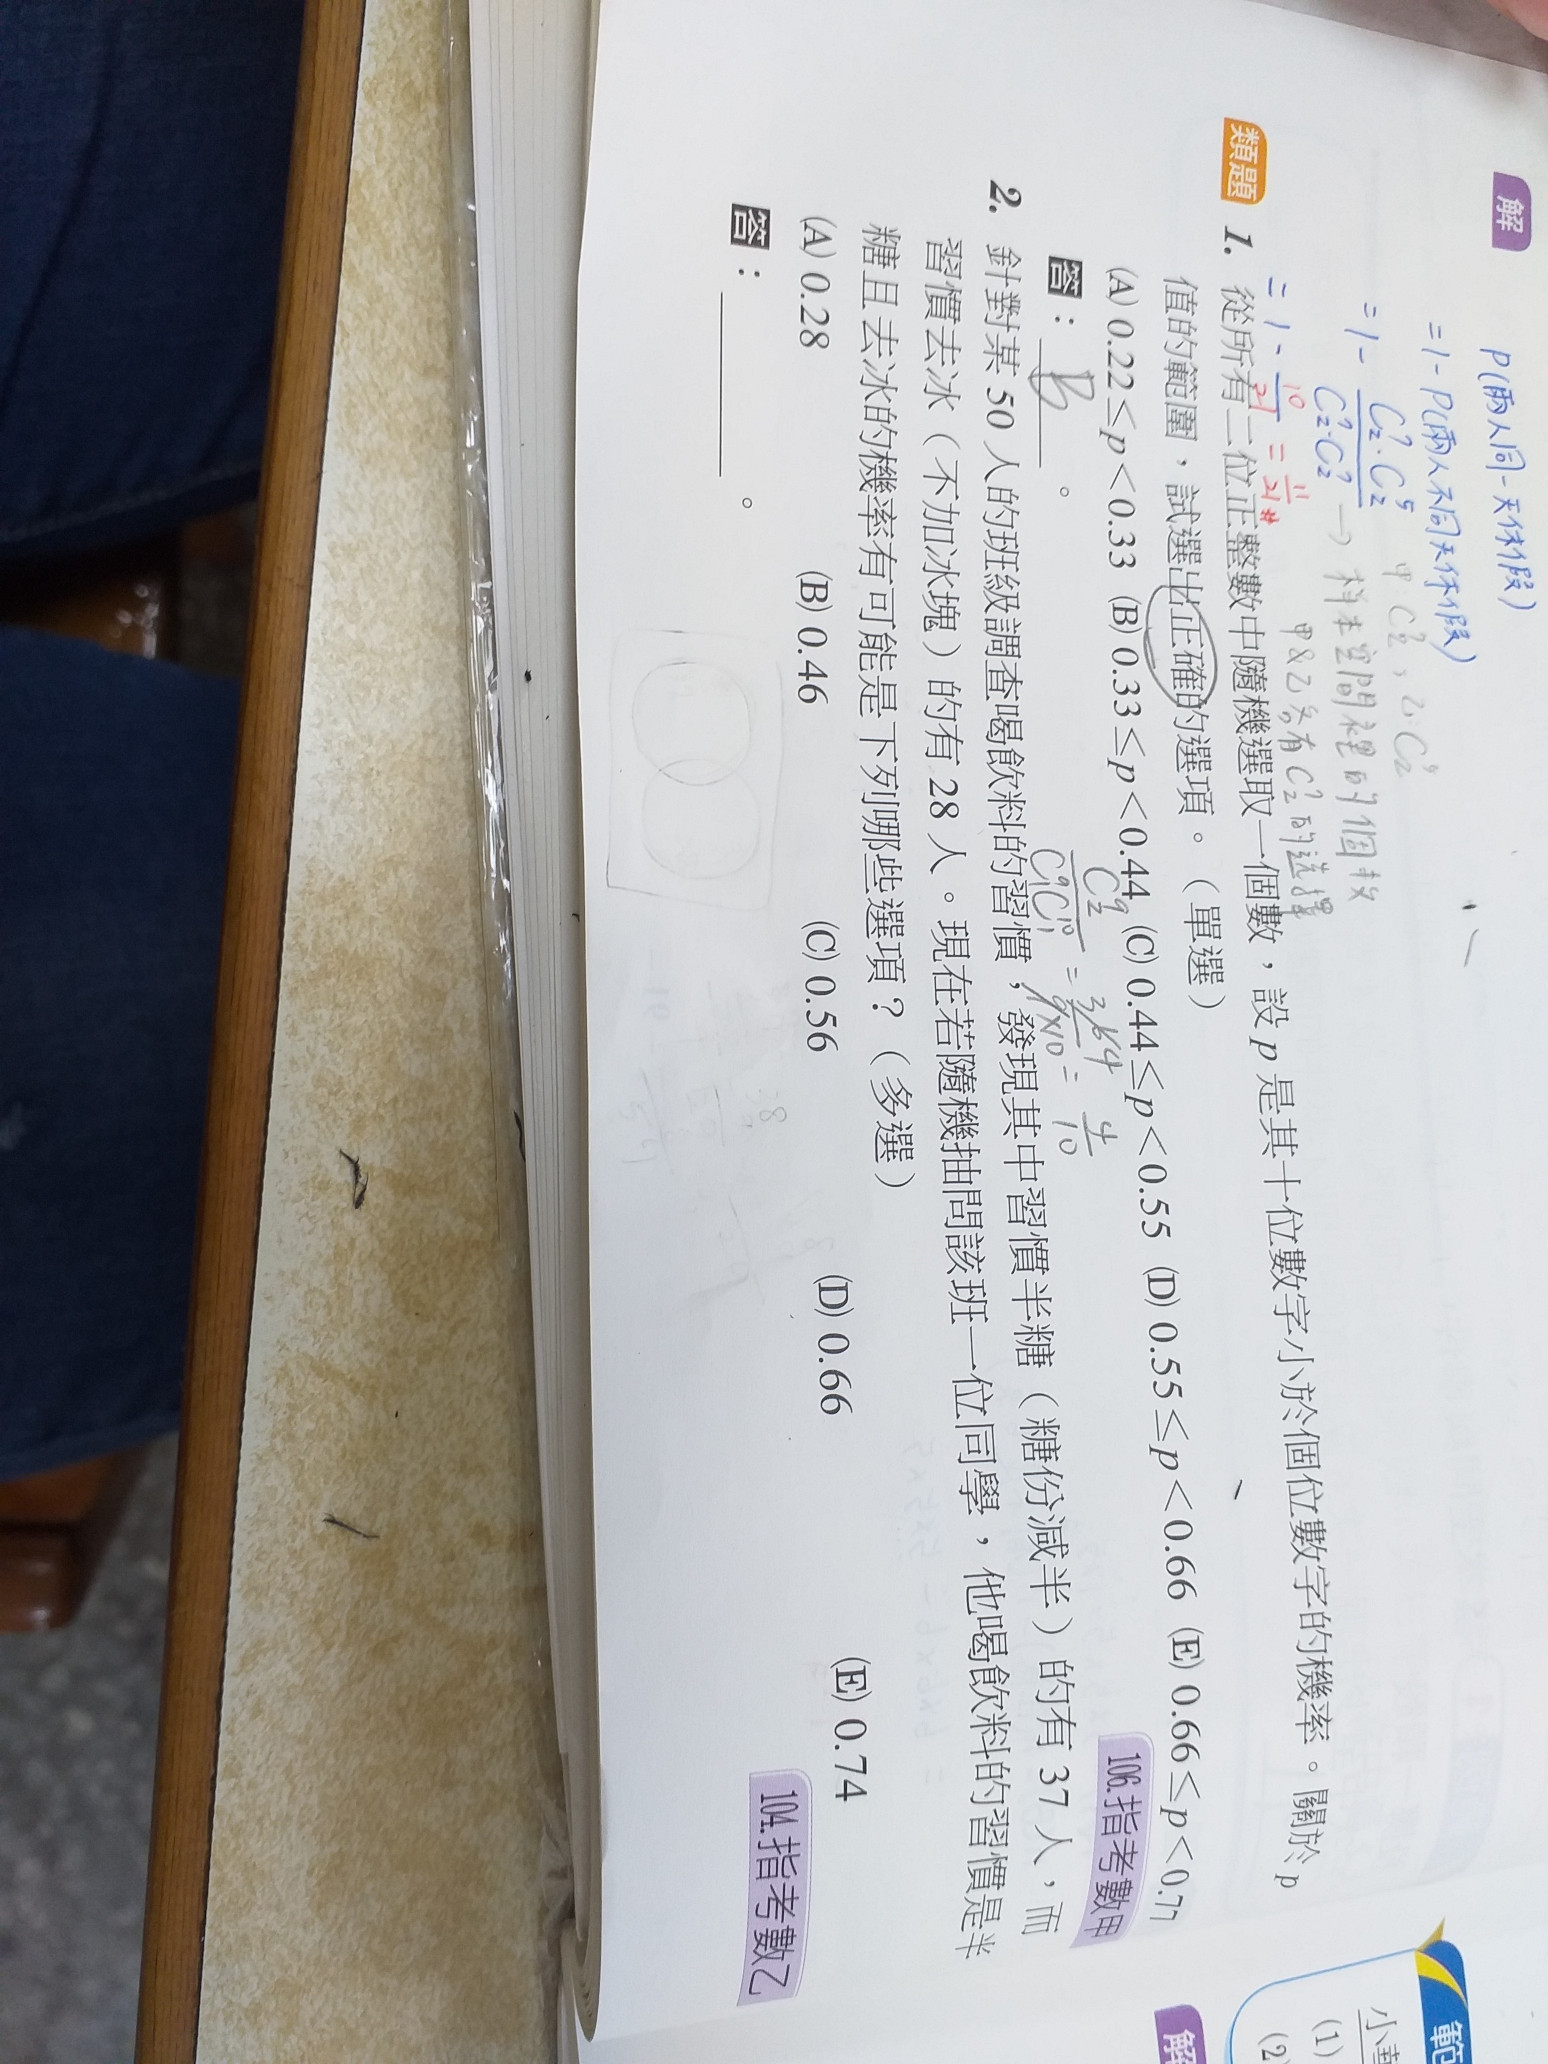 解
P(兩人同一天休假)
=1-P(兩人不同天休假)
=1- C⁷₂·C⁵₂ / C⁷₂·C⁷₂ → 樣本空間裡的個數
甲 C⁷₂, 乙 C⁵₂
甲&乙各有C⁷₂的選擇
=1- 10/21 = 11/21 #
類題 1. 從所有二位正整數中隨機選取一個數,設 p 是其十位數字小於個位數字的機率。關於 p
值的範圍,試選出正確的選項。(單選)
(A) 0.22≤p<0.33 (B) 0.33≤p<0.44 (C) 0.44≤p<0.55 (D) 0.55≤p<0.66 (E) 0.66≤p<0.77
答: B 。
C⁹₂ / C⁹₁C¹⁰₁ = 36×4 / 9×10 = 4/10
106.指考數甲
2. 針對某 50 人的班級調查喝飲料的習慣,發現其中習慣半糖(糖份減半)的有 37 人,而
習慣去冰(不加冰塊)的有 28 人。現在若隨機抽問該班一位同學,他喝飲料的習慣是半
糖且去冰的機率有可能是下列哪些選項?(多選)
(A) 0.28 (B) 0.46 (C) 0.56 (D) 0.66 (E) 0.74
答: 。
104.指考數乙
範
小華
(1)
(2)
解